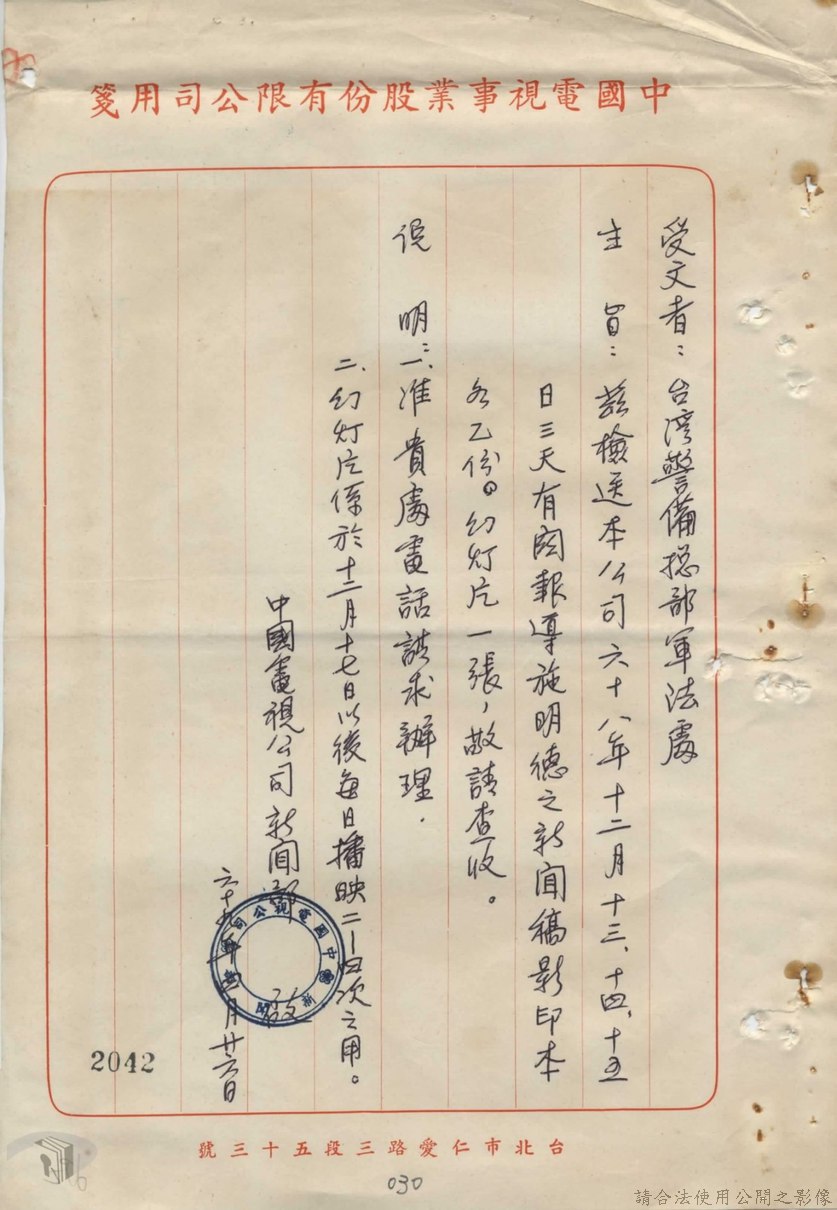 中國電視事業股份有限公司用箋
受文者：台湾警備總部軍法處
主旨：茲檢送本公司六十八年十二月十三、十四、十五
日三天有関報導施明德之新闻稿影印本
各乙份。幻灯片一張，敬請查收。
説明：一、准貴處電話請求辦理．
二、幻灯片係於十二月十七日以後每日播映二－四次之用。
中國電視公司新闻部 啟
六十九年四月廿六日
2042
台北市仁愛路三段五十三號
030
請合法使用公開之影像